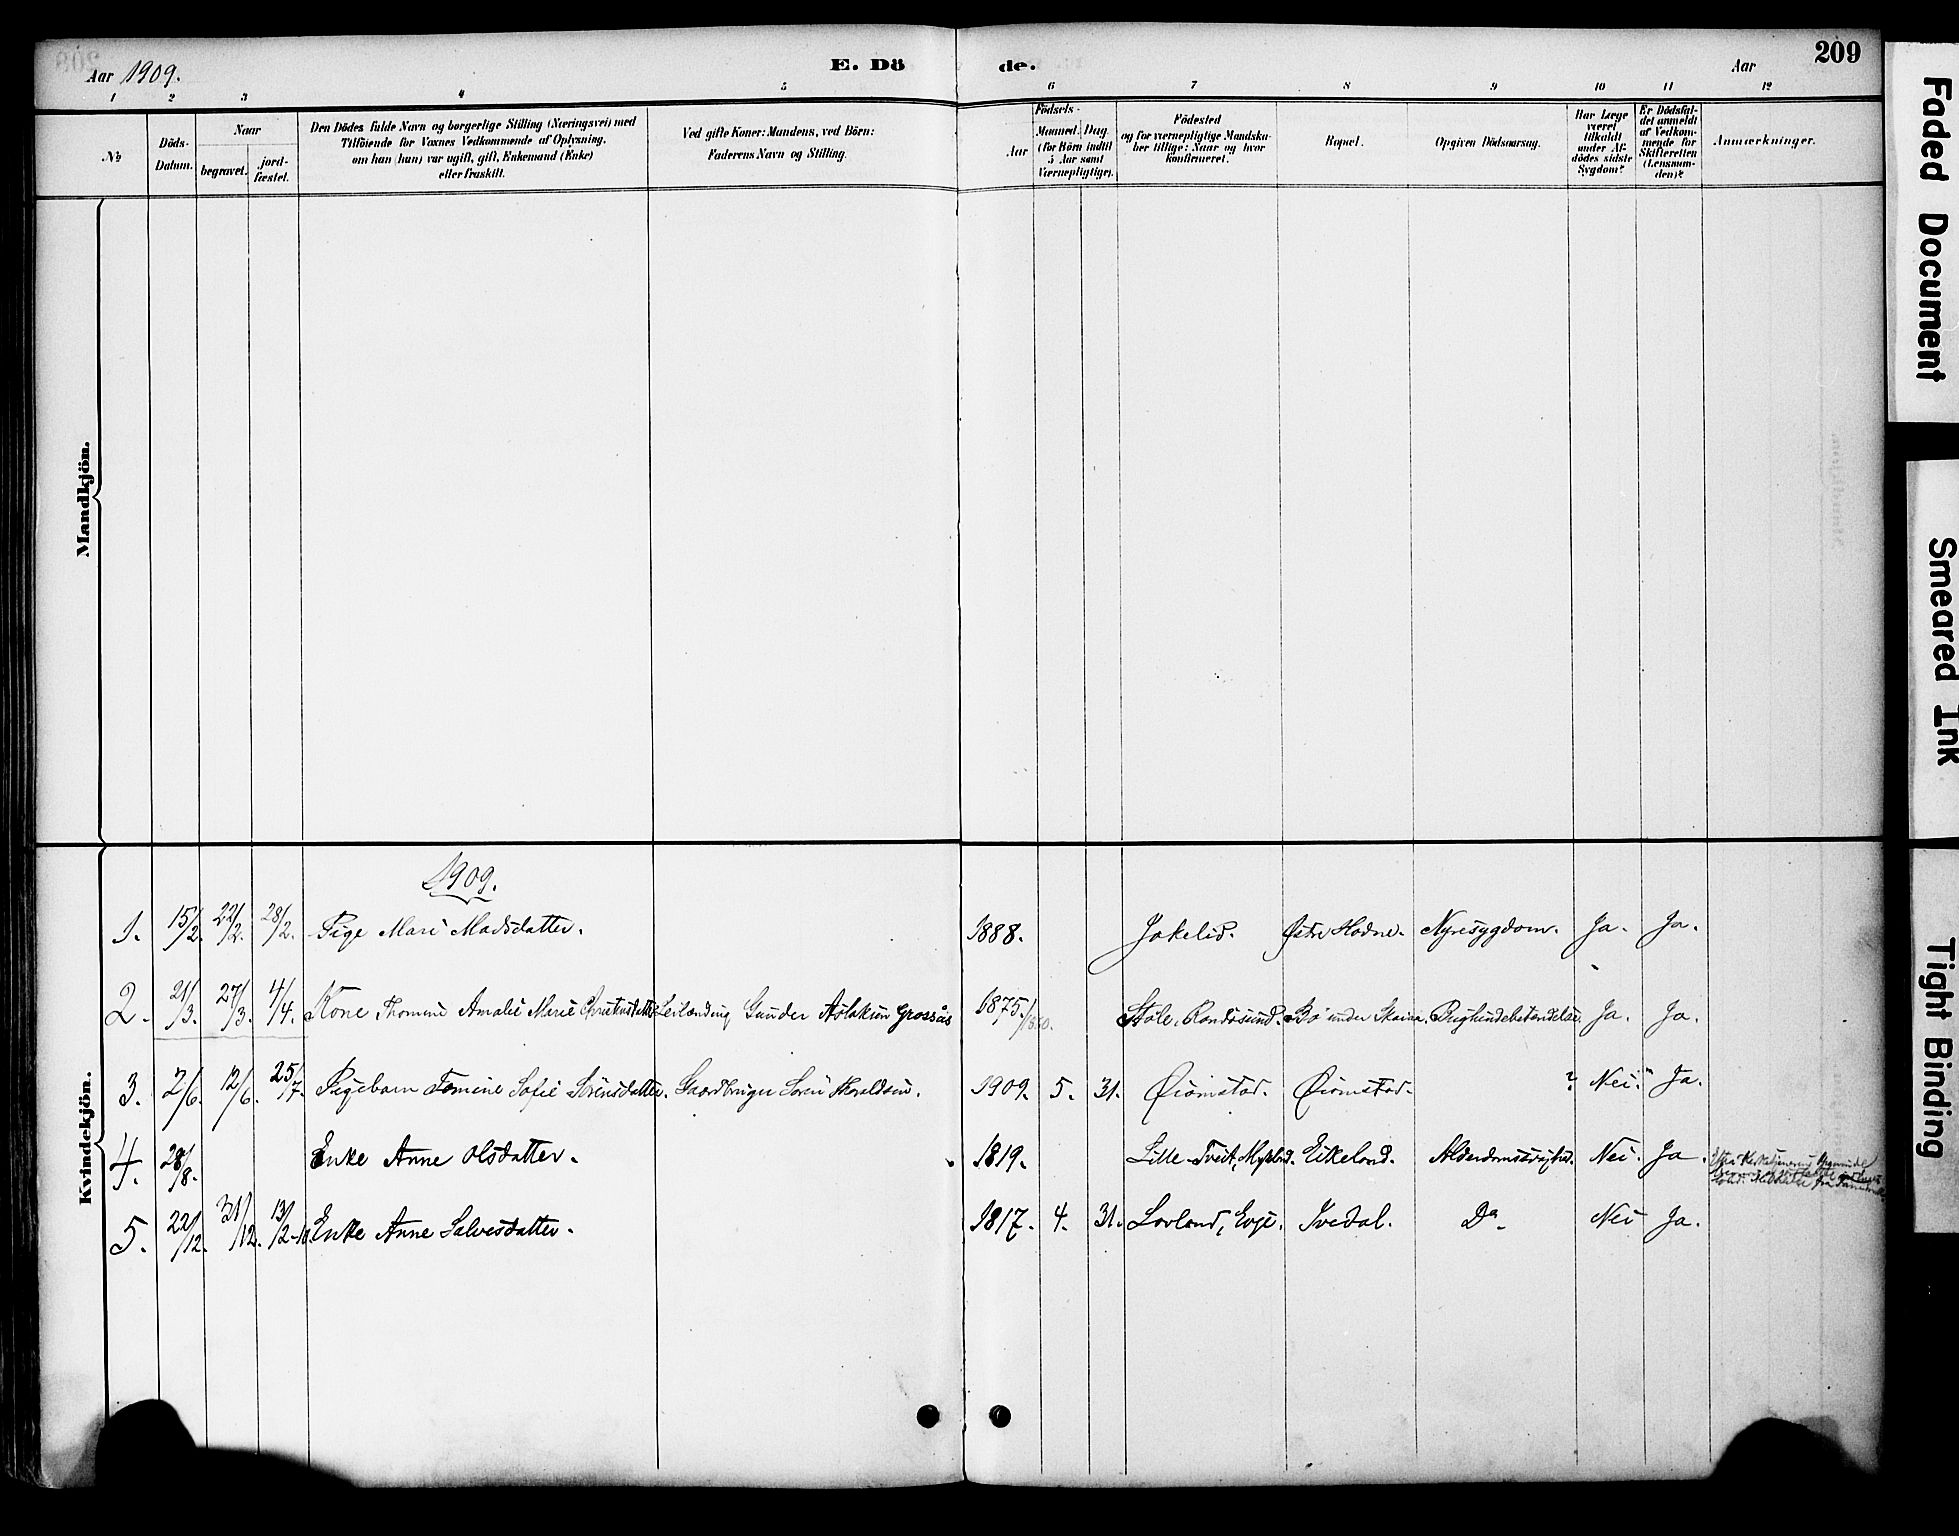 Aar 1909.
E. Dö
de.
Aar
209
1 2 3 4 5 6 7 8 9 10 11 12
№
Döds-
Datum.
Naar
begravet.
jord-
fæstet.
Den Dödes fulde Navn og borgerlige Stilling (Næringsvei) med
Tilföiende for Voxnes Vedkommende af Oplysning,
om han (hun) var ugift, gift, Enkemand (Enke)
eller fraskilt.
Ved gifte Koner: Mandens, ved Börn:
Faderens Navn og Stilling.
Födsels-
Aar
Maaned. Dag.
(for Börn indtil
5 Aar samt
Værnepligtige).
Födested
og for værnepligtige Mandskaber
tillige: Naar og hvor
konfirmeret.
Bopæl.
Opgiven Dödsaarsag.
Har Læge
været
tilkaldt
under Afdödes
sidste
Sygdom?
Er Dödsfaldet
anmeldt
af Vedkommende
for
Skifteretten
(Lensmanden)?
Anmærkninger.
Mandkjön.
Kvindekjön.
1909.
1. 15/2. 22/2. 28/2. Pige Mari Madsdatter. 1888. Jokelid. Østre Hodne. Nyresygdom. Ja. Ja.
2. 21/3. 27/3. 4/4. Kone Thomine Amalie Marie Leilænding Gunder Aslaksen Grossås 1875. Støle, Randøsund. Bø under Bughindebetændelse. Ja. Ja.
3. 2/6. 12/6. 25/7. Pigebarn Tomine Sofie Sörensdatter. Gaardbruger Sören Haraldsen. 1909. 5. 31. Øiomstad. Øiomstad. ? Nei. Ja.
4. 28/8. Enke Anne Olsdatter. 1819. Lille-Tveit, Eikeland. Alderdomssvaghed. Nei. Ja.
5. 22/12. 31/12. 13/2-10. Enke Anne Salvesdatter. 1817. 4. 31. Lovland, Evje. Ivedal. Do. Nei Ja.
Faded Document
Smeared Ink
Tight Binding